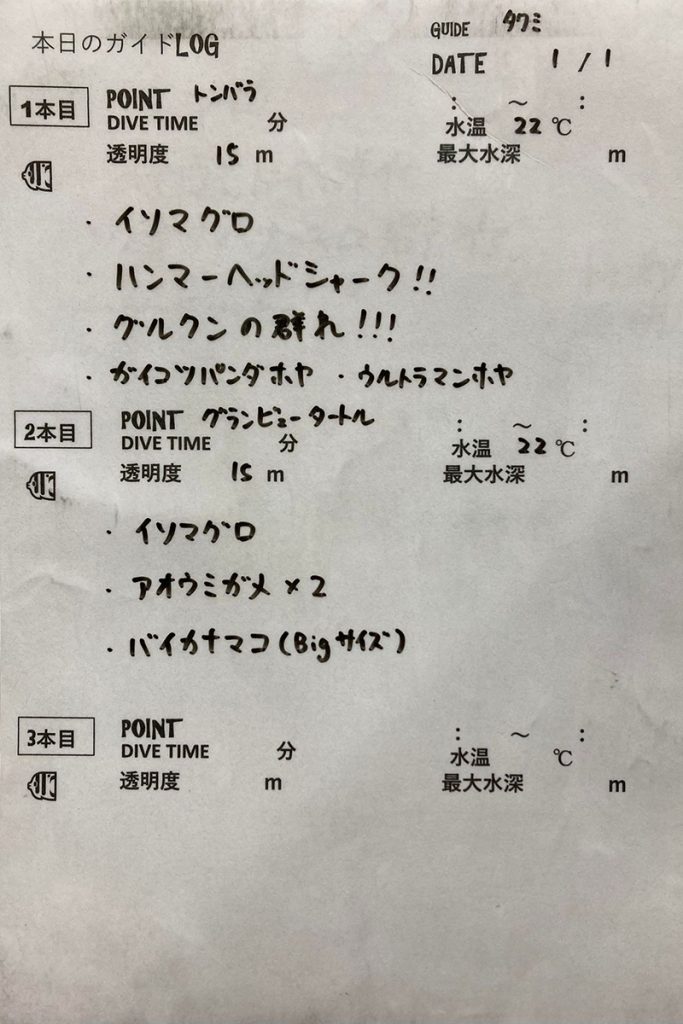 本日のガイドLOG
GUIDE タクミ
DATE 1 / 1
1本目 POINT トンバラ : ~ :
DIVE TIME 分 水温 22 ℃
透明度 15 m 最大水深 m
・イソマグロ
・ハンマーヘッドシャーク!!
・グルクンの群れ!!!
・ガイコツパンダホヤ ・ウルトラマンホヤ
2本目 POINT グランビュータートル : ~ :
DIVE TIME 分 水温 22 ℃
透明度 15 m 最大水深 m
・イソマグロ
・アオウミガメ×2
・バイカナマコ(Bigサイズ)
3本目 POINT : ~ :
DIVE TIME 分 水温 ℃
透明度 m 最大水深 m